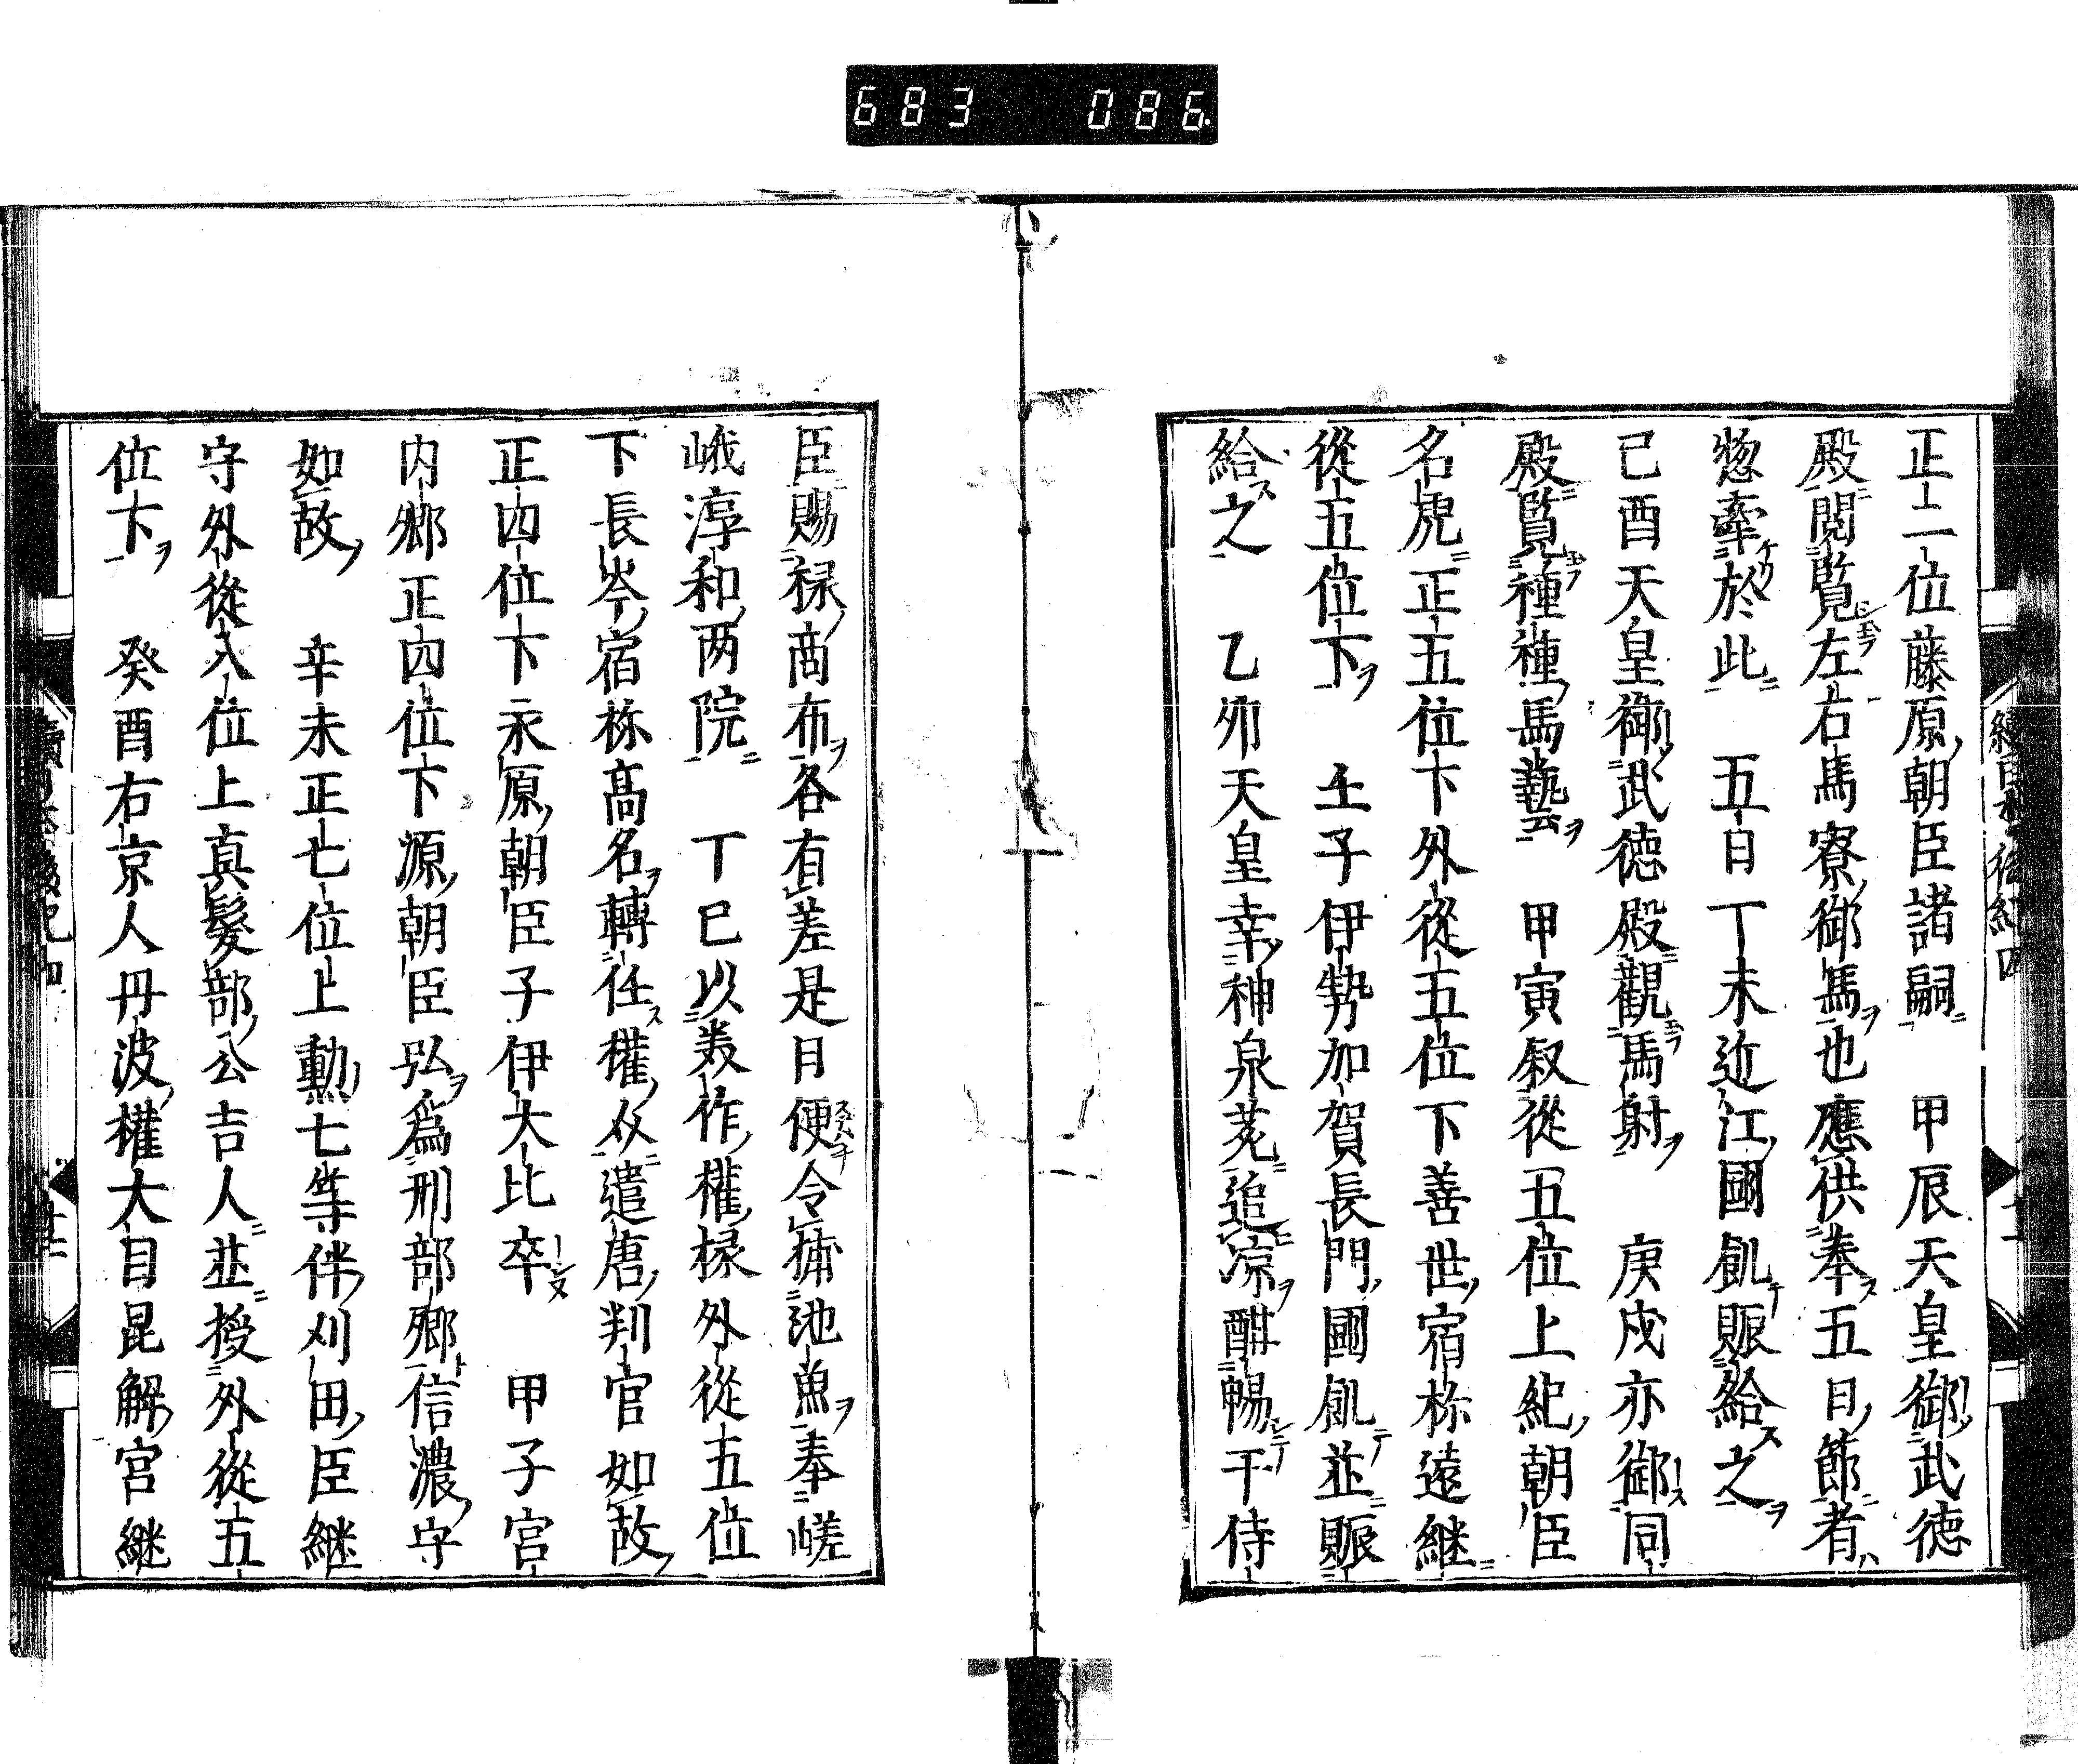 683 086
正二位藤原朝臣諸嗣　甲辰天皇御武徳
殿閲覧左右馬寮御馬也應供奉五日節者
惣牽於此　五日丁未近江國飢賑給之
己酉天皇御武徳殿觀馬射　庚戌亦御同
殿覧種種馬藝云　甲寅叙從五位上紀朝臣
名虎正五位下外從五位下善世宿祢遠継
從五位下　壬子伊勢加賀長門國飢並賑
給之　乙夘天皇幸神泉苑追凉酣暢于侍
臣賜禄商布各有差是日便令捕池魚奉嵯
峨淳和两院　丁巳以美作權掾外從五位
下長岑宿祢髙名轉任權介遣唐判官如故
正四位下永原朝臣子伊大比卒　甲子宮
内卿正四位下源朝臣弘爲刑部卿信濃守
如故　辛未正七位上勳七等伴刈田臣継
守外從八位上真髮部公吉人並授外從五
位下　癸酉右京人丹波權大目昆解宮継